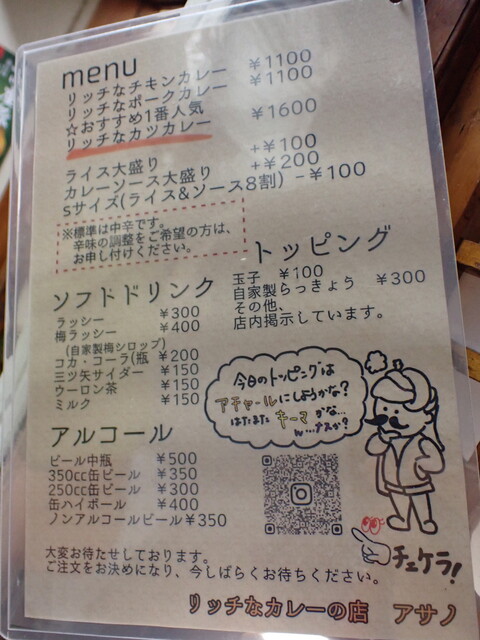 menu
リッチなチキンカレー ¥1100
リッチなポークカレー ¥1100
☆おすすめ1番人気
リッチなカツカレー ¥1600
ライス大盛り +¥100
カレーソース大盛り +¥200
sサイズ(ライス&ソース8割) -¥100
※標準は中辛です。
辛味の調整をご希望の方は、
お申し付けください。
トッピング
玉子 ¥100
自家製らっきょう ¥300
その他、
店内掲示しています。
ソフトドリンク
ラッシー ¥300
梅ラッシー ¥400
(自家製梅シロップ)
コカ・コーラ(瓶 ¥200
三ツ矢サイダー ¥150
ウーロン茶 ¥150
ミルク ¥150
今日のトッピングは
アチャールにしようかな?
はたまた キーマ かな…
ん…ナスか?
アルコール
ビール中瓶 ¥500
350cc缶ビール ¥350
250cc缶ビール ¥300
缶ハイボール ¥400
ノンアルコールビール¥350
チェケラ!
大変お待たせしております。
ご注文をお決めになり、今しばらくお待ちください。
リッチなカレーの店 アサノ